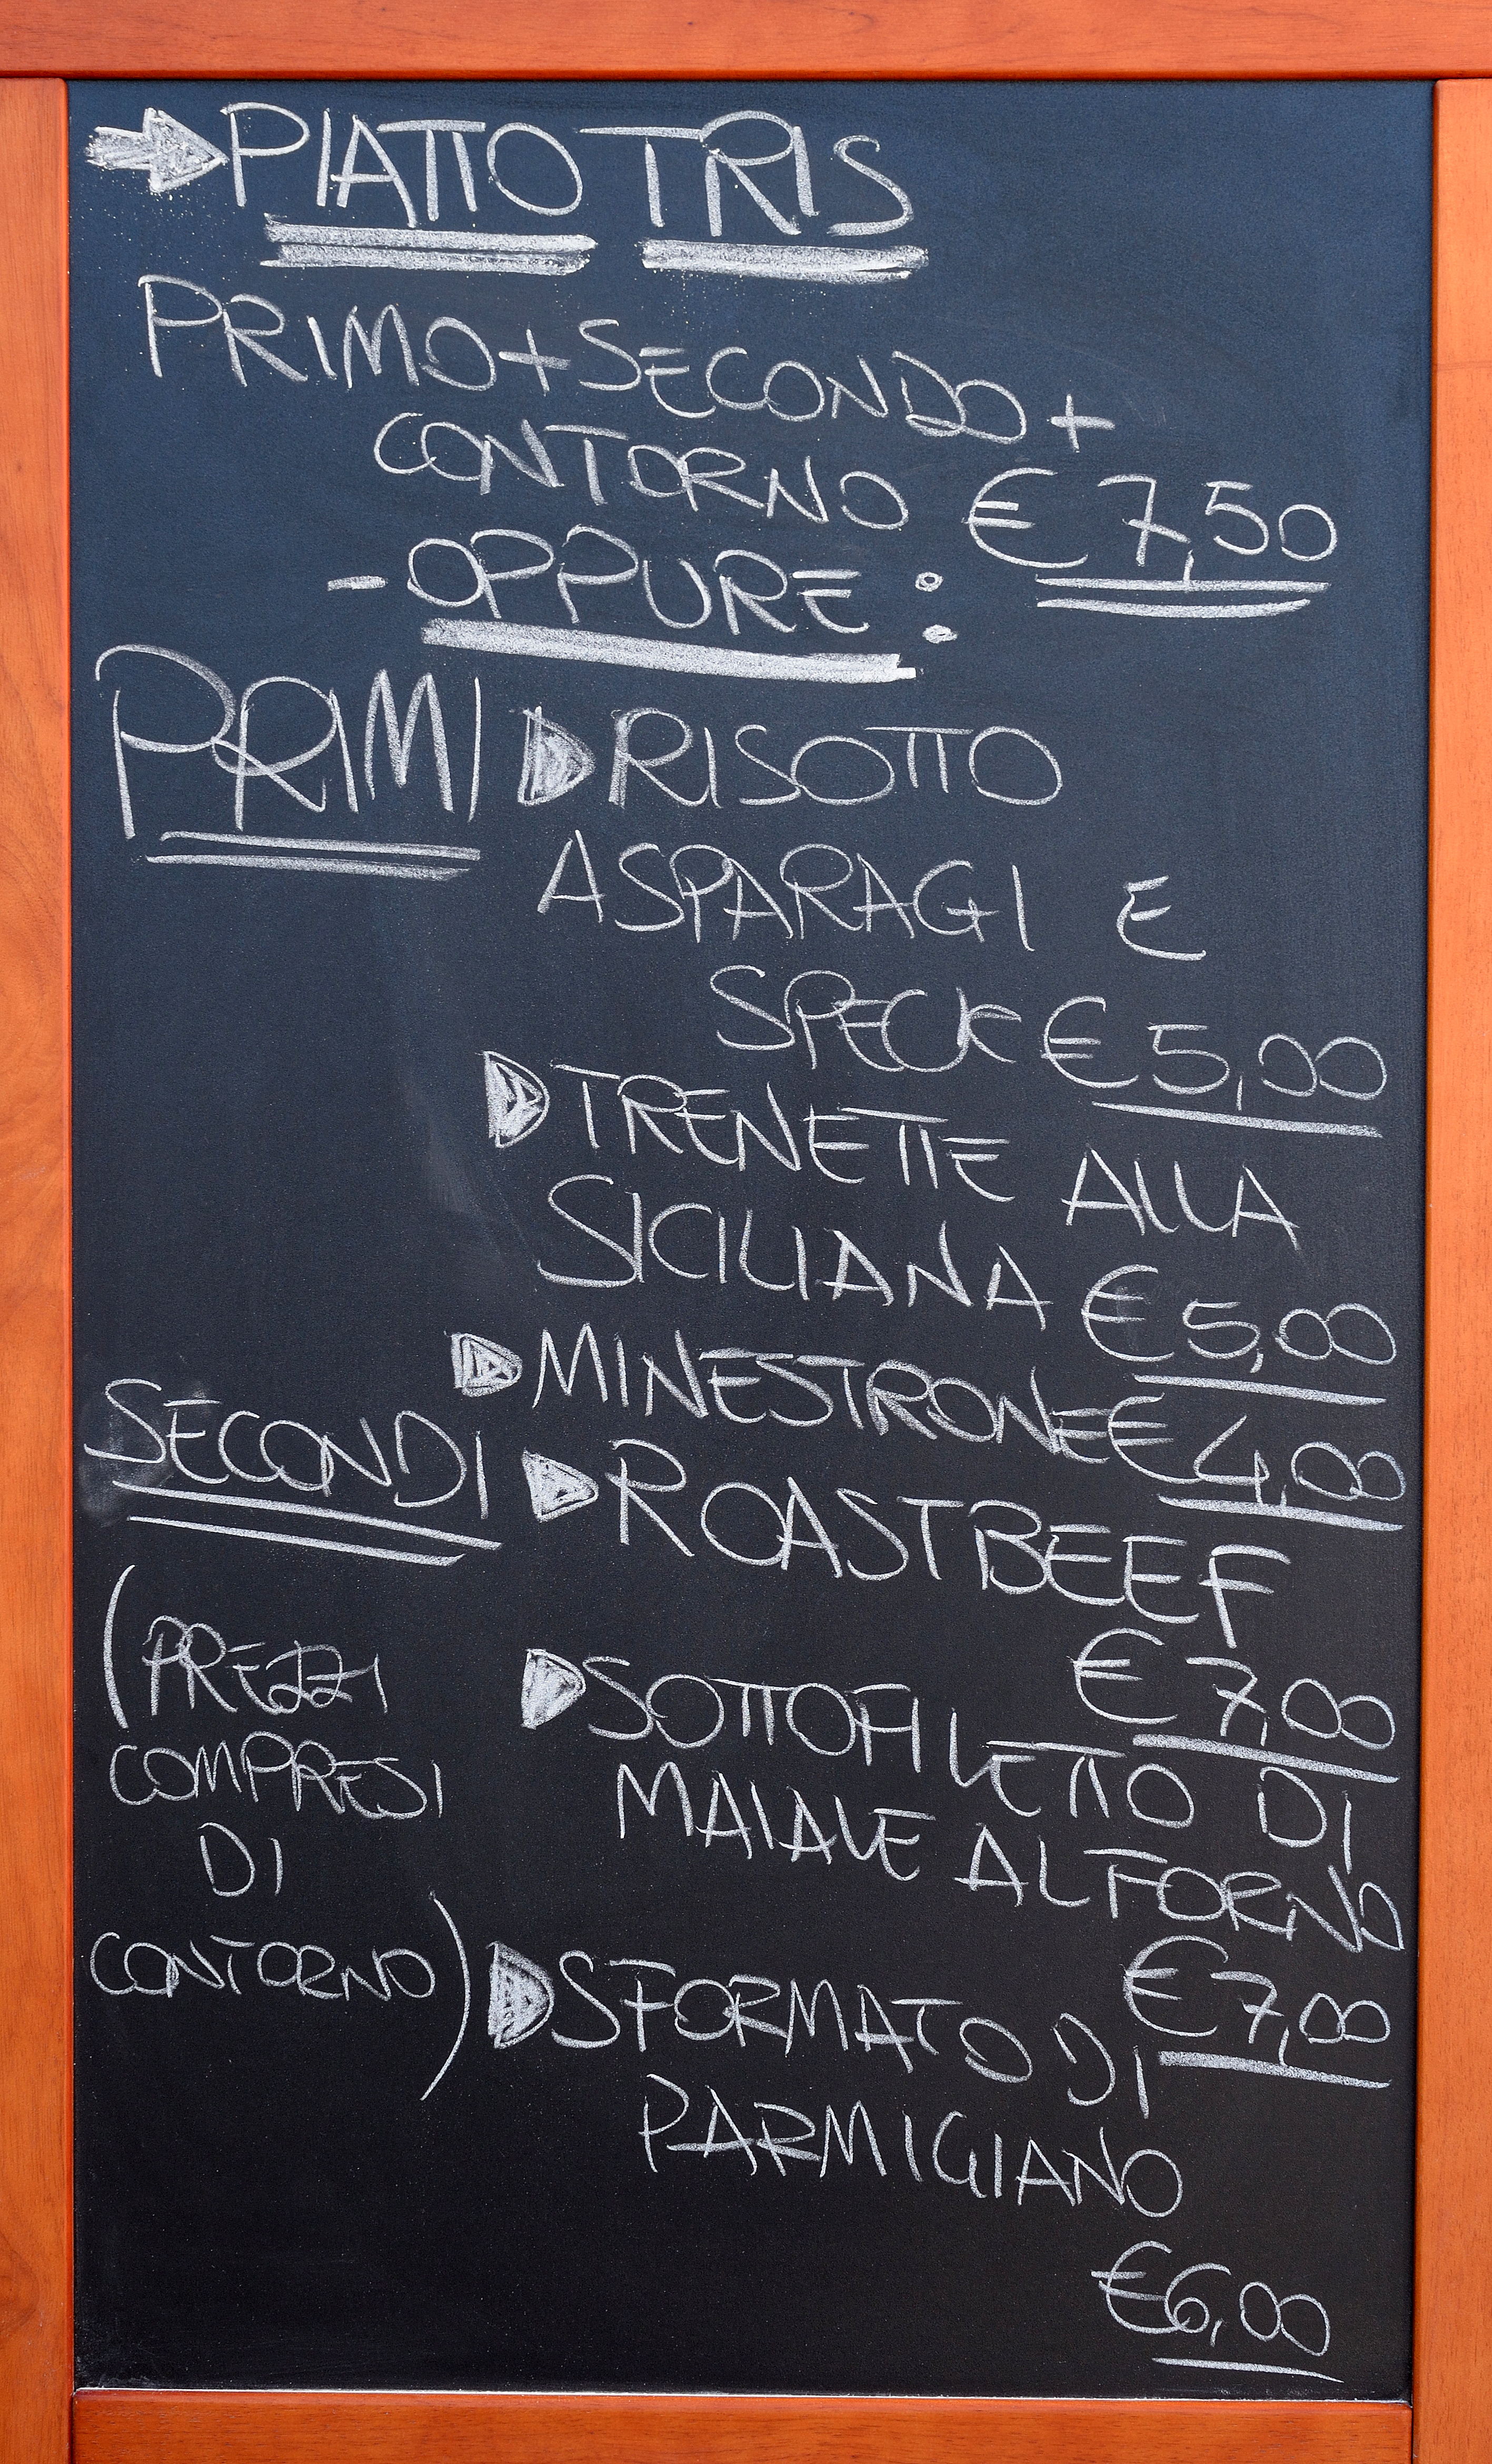 PIATTO TRIS
PRIMO+SECONDO+
CONTORNO € 7,50
-OPPURE:
PRIMI RISOTTO
ASPARAGI E
SPECK € 5,00
TRENETTE ALLA
SICILIANA € 5,00
MINESTRONE € 4,00
SECONDI ROASTBEEF
€ 7,00
(PREZZI
COMPRESI
DI
CONTORNO)
SOTTOFILETTO DI
MAIALE AL FORNO
€ 7,00
SFORMATO DI
PARMIGIANO
€6,00